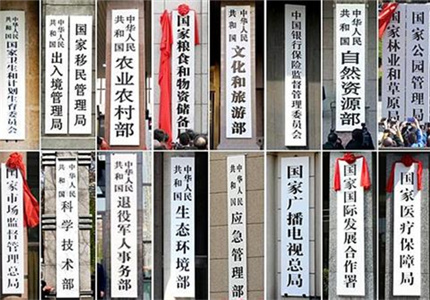 中华人民
共和国
国家卫生和计划生育委员会
中华人民
共和国
出入境管理局
国家移民管理局
中华人民
共和国
农业农村部
国家粮食和物资储备
中华人民
共和国
文化和旅游部
中国银行保险监督管理委员会
中华人民
共和国
自然资源部
国家林业和草原局
国家公园管理局
国家市场监督管理总局
中华人民
共和国
科学技术部
中华人民
共和国
退役军人事务部
中华人民
共和国
生态环境部
中华人民
共和国
应急管理部
国家广播电视总局
国家国际发展合作署
国家医疗保障局